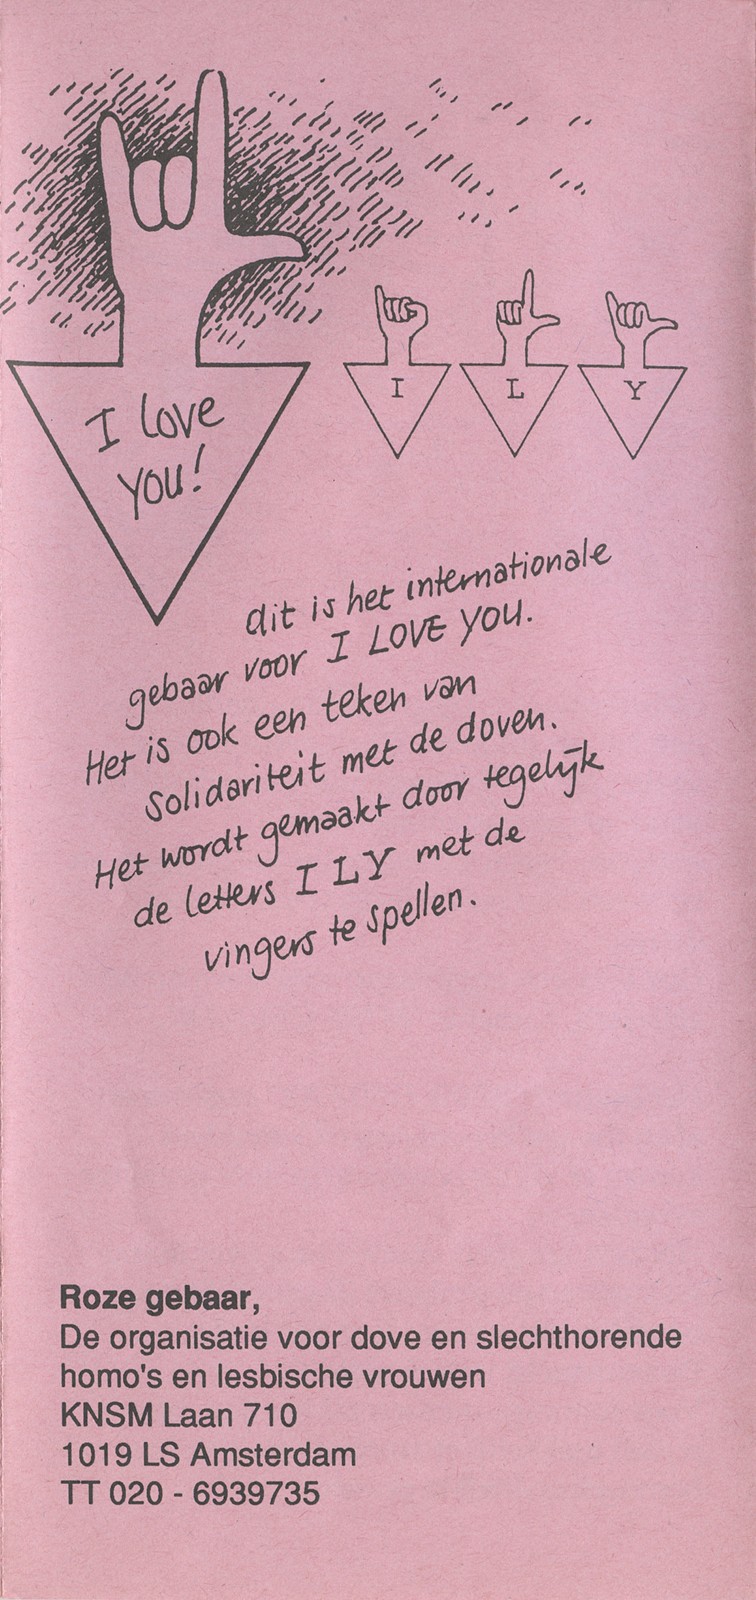 I love
you!
I L Y
dit is het internationale
gebaar voor I LOVE YOU.
Het is ook een teken van
solidariteit met de doven.
Het wordt gemaakt door tegelijk
de letters I L Y met de
vingers te spellen.
Roze gebaar,
De organisatie voor dove en slechthorende
homo's en lesbische vrouwen
KNSM Laan 710
1019 LS Amsterdam
TT 020 - 6939735